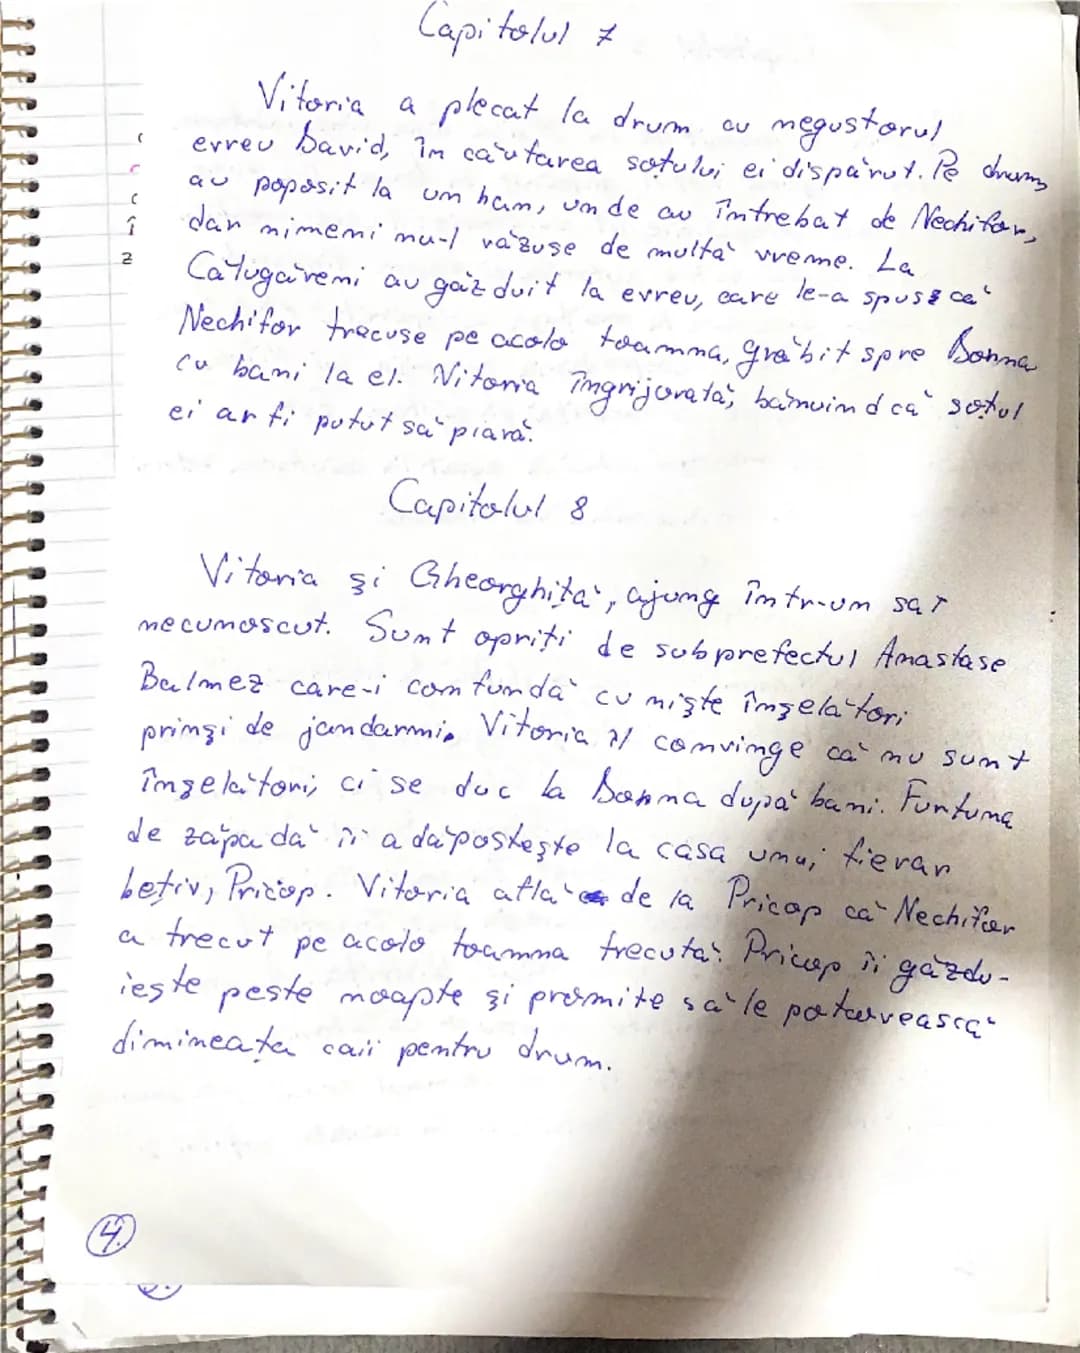 Capitolul 7
Vitoria a plecat la drum cu negustorul
evreu David, în căutarea soțului ei dispărut. Pe drum,
au poposit la un han, unde au întrebat de Nechifor,
dar nimeni nu-l văzuse de multă vreme. La
Călugăreni au găzduit la evreu, care le-a spus că
Nechifor trecuse pe acolo toamna, grăbit spre Dorna
cu bani la el. Vitoria îngrijorată, bănuind că soțul
ei ar fi putut să piară.
Capitolul 8
Vitoria și Gheorghiță, ajung într-un sat
necunoscut. Sunt opriți de subprefectul Anastase
Balmez care-i confundă cu niște înșelători
prinși de jandarmi. Vitoria îl convinge că nu sunt
înșelători, ci se duc la Dorna după bani. Furtuna
de zăpadă îi adăpostește la casa unui fierar
bețiv, Pricop. Vitoria află de la Pricop că Nechifor
a trecut pe acolo toamna trecută. Pricop îi găzdu-
iește peste noapte și promite să le potcovească
dimineața caii pentru drum.
4.